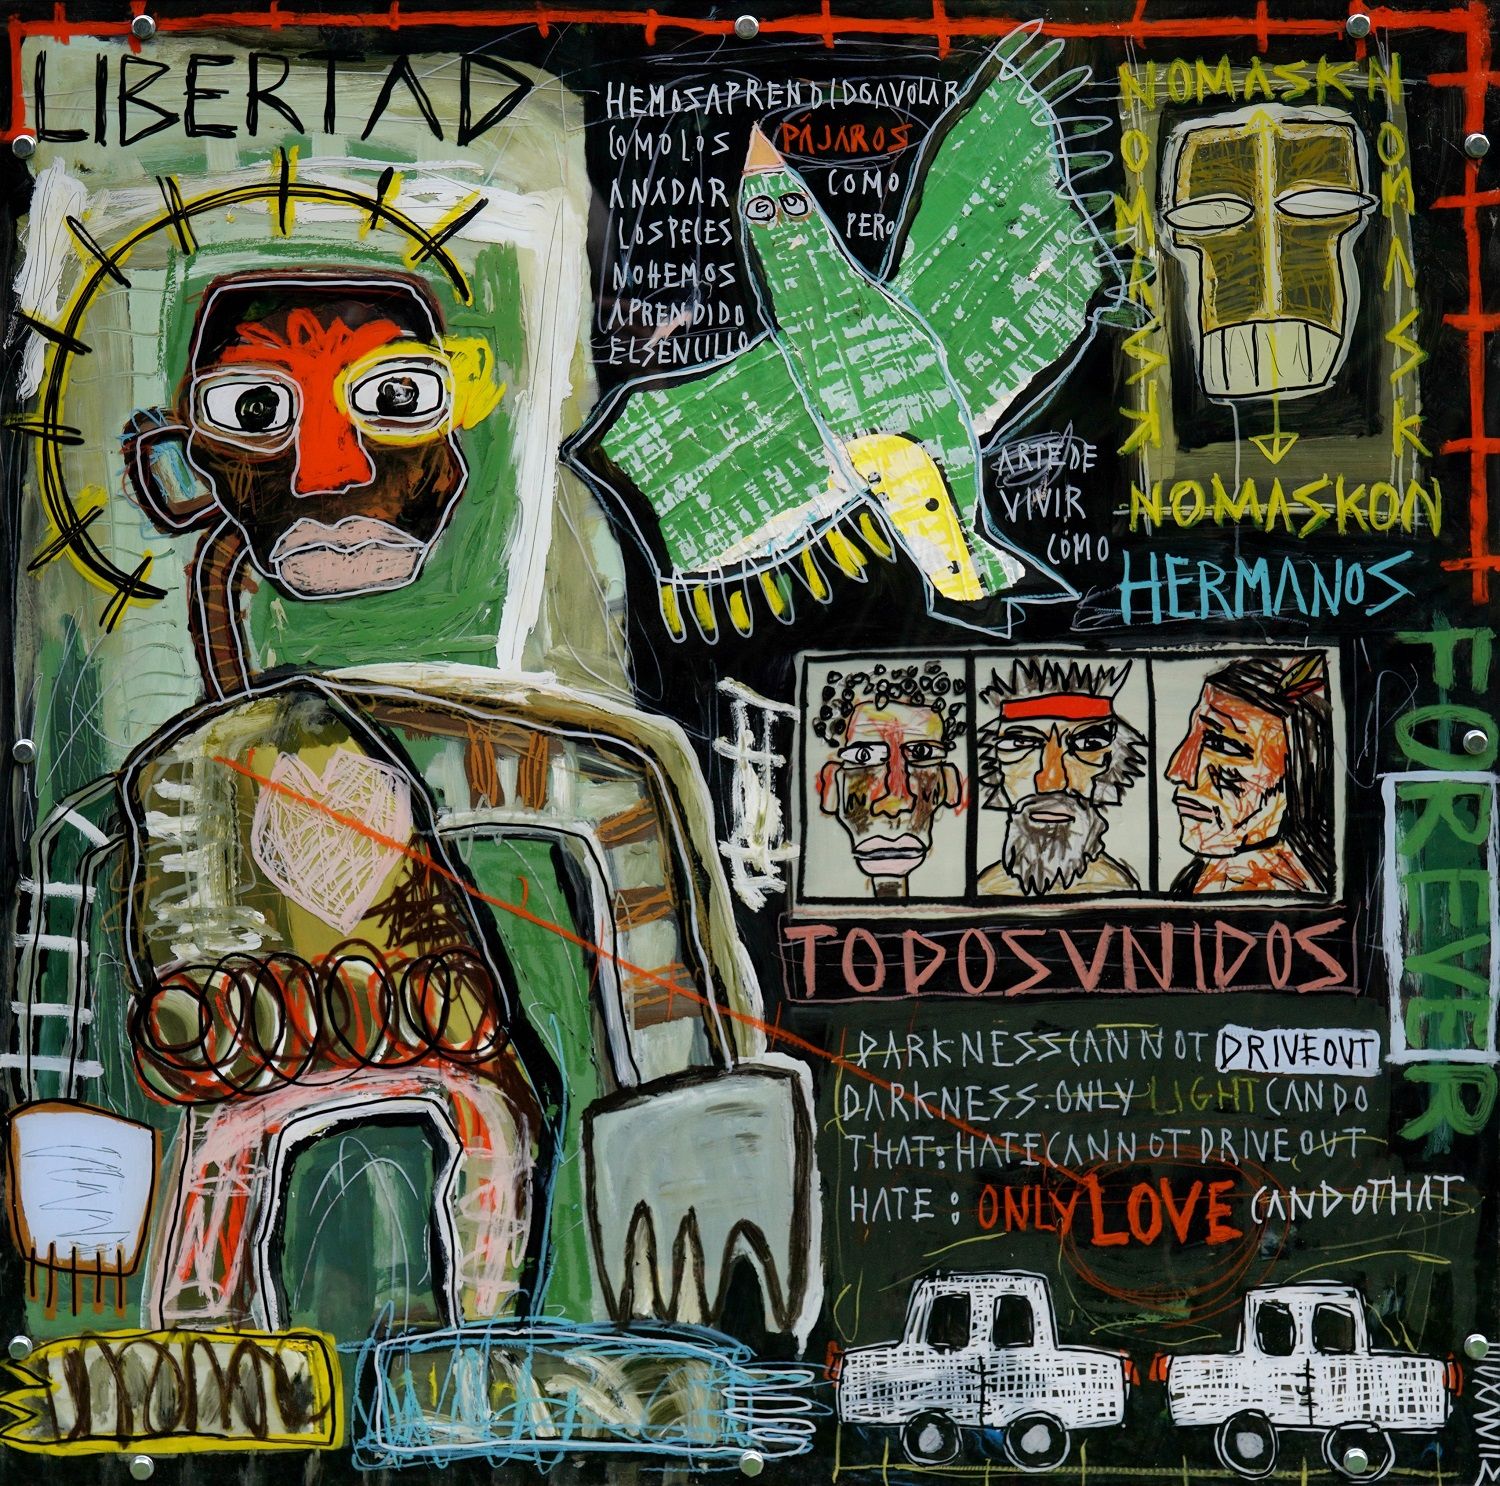 LIBERTAD
HEMOSAPRENDIDOAVOLAR
COMOLOS PÁJAROS
ANADAR COMO
LOSPECES PERO
NOHEMOS
APRENDIDO
ELSENCILLO
ARTEDE
VIVIR
CÓMO
HERMANOS
NOMASKN
NOMASK
NOMASK
NOMASKON
FOREVER
TODOSVNIDOS
DARKNESSCANNOT DRIVEOUT
DARKNESS.ONLY LIGHT CANDO
THAT:HATECANNOTDRIVEOUT
HATE: ONLY LOVE CANDOTHAT